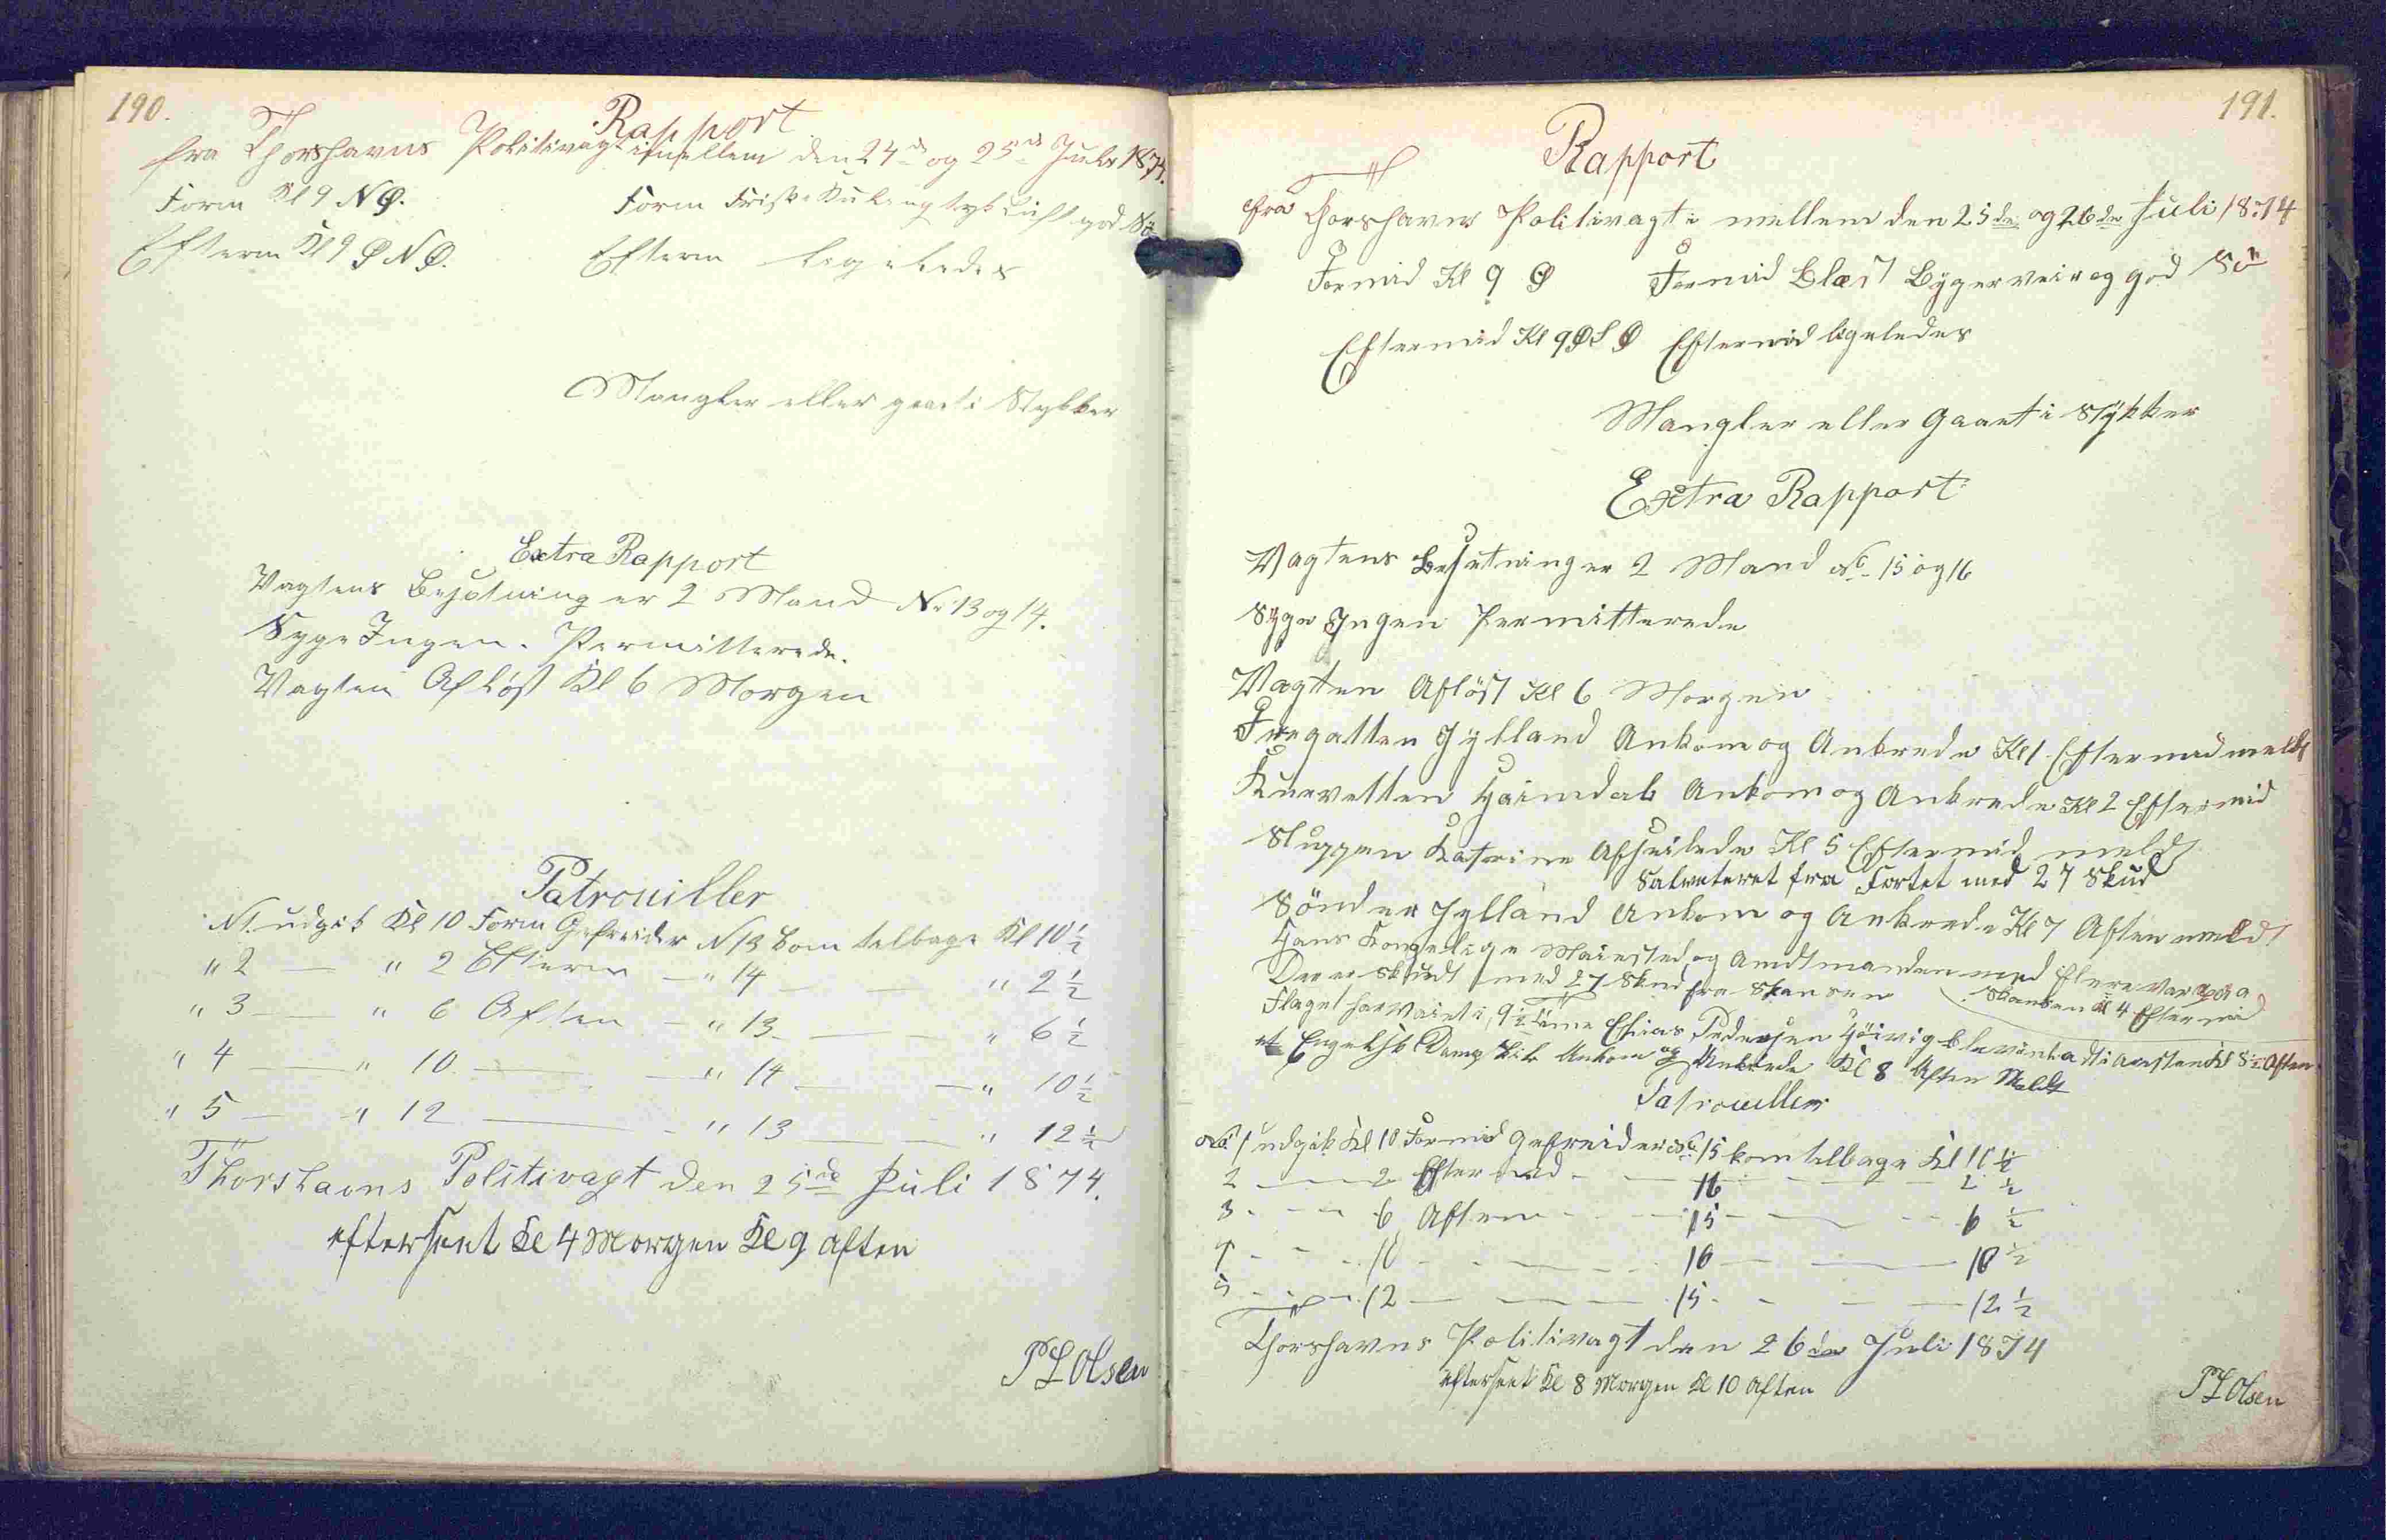 190.
Rapport
fra Thorshavns Politivagt imellem den 24de og 25de Juli 1874.
Form Kl 9 NØ. Form Frisk Kuling tyk Luft god Sø
Efterm Kl 9 ØNØ. Efterm ligeledes
Mangler eller gaaet i Stykker
Extra Rapport
Vagtens Besætning er 2 Mand Nr 13 og 14.
Syge Ingen. Permitterede.
Vagten Afløst Kl 6 Morgen
Patrouiller
N 1. udgik Kl 10 Form Gefreider N 13 kom tilbage Kl 10 1/2
" 2 — " 2 Efterm — " 14 — — " 2 1/2
" 3 — " 6 Aften — " 13 — — " 6 1/2
" 4 — " 10 — — " 14 — — " 10 1/2
" 5 — " 12 — — " 13 — — " 12 1/2
Thorshavns Politivagt den 25de Juli 1874.
efterseet Kl 4 Morgen Kl 9 aften
P L Olsen
191.
Rapport
fra Thorshavns Politivagt i mellem den 25de og 26de Juli 1874
Formid Kl 9 Ø Formid Blæst Bygerveir og god Sø
Eftermid Kl 9 ØSØ Eftermid ligeledes
Mangler eller Gaaet i Stykker
Extra Rapport
Vagtens Besetning er 2 Mand No 15 og 16
Syge Ingen Permitterede
Vagten Afløst Kl 6 Morgen
Fregatten Jylland Ankom og Ankrede Kl 1 Eftermid meldt
Kurvetten Heimdal Ankom og Ankrede Kl 2 Eftermid
Sluppen Katrine Afseilede Kl 5 Eftermid meldt
Saluteret fra Fortet med 27 Skud
Sønder Jylland Ankom og Ankrede Kl 7 Aften meldt
Hans Kongelige Maiested og Amdtmanden med flere var paa
Skansen Kl 4 Eftermid
Der er skudt med 27 Skud fra Skansen
Flaget har vaiet i 9 1/2 Time Elias Pedersen Höivig blev i Aresten Kl 8 1/2 Aften
et Engelsk Damp Skib Ankom og Ankrede Kl 8 Aften Meldt
Patrouiller
No 1 udgik Kl 10 Formid Gefreider No 15 kom tilbage Kl 10 1/2
2 — — 2 Eftermid — — 16 — — 2 1/2
3 — — 6 Aften — — 15 — — 6 1/2
4 — — 10 — — 16 — — 10 1/2
5 — — 12 — — 15 — — 12 1/2
Thorshavns Politivagt den 26de Juli 1874
efterseet Kl 8 Morgen Kl 10 Aften
P L Olsen